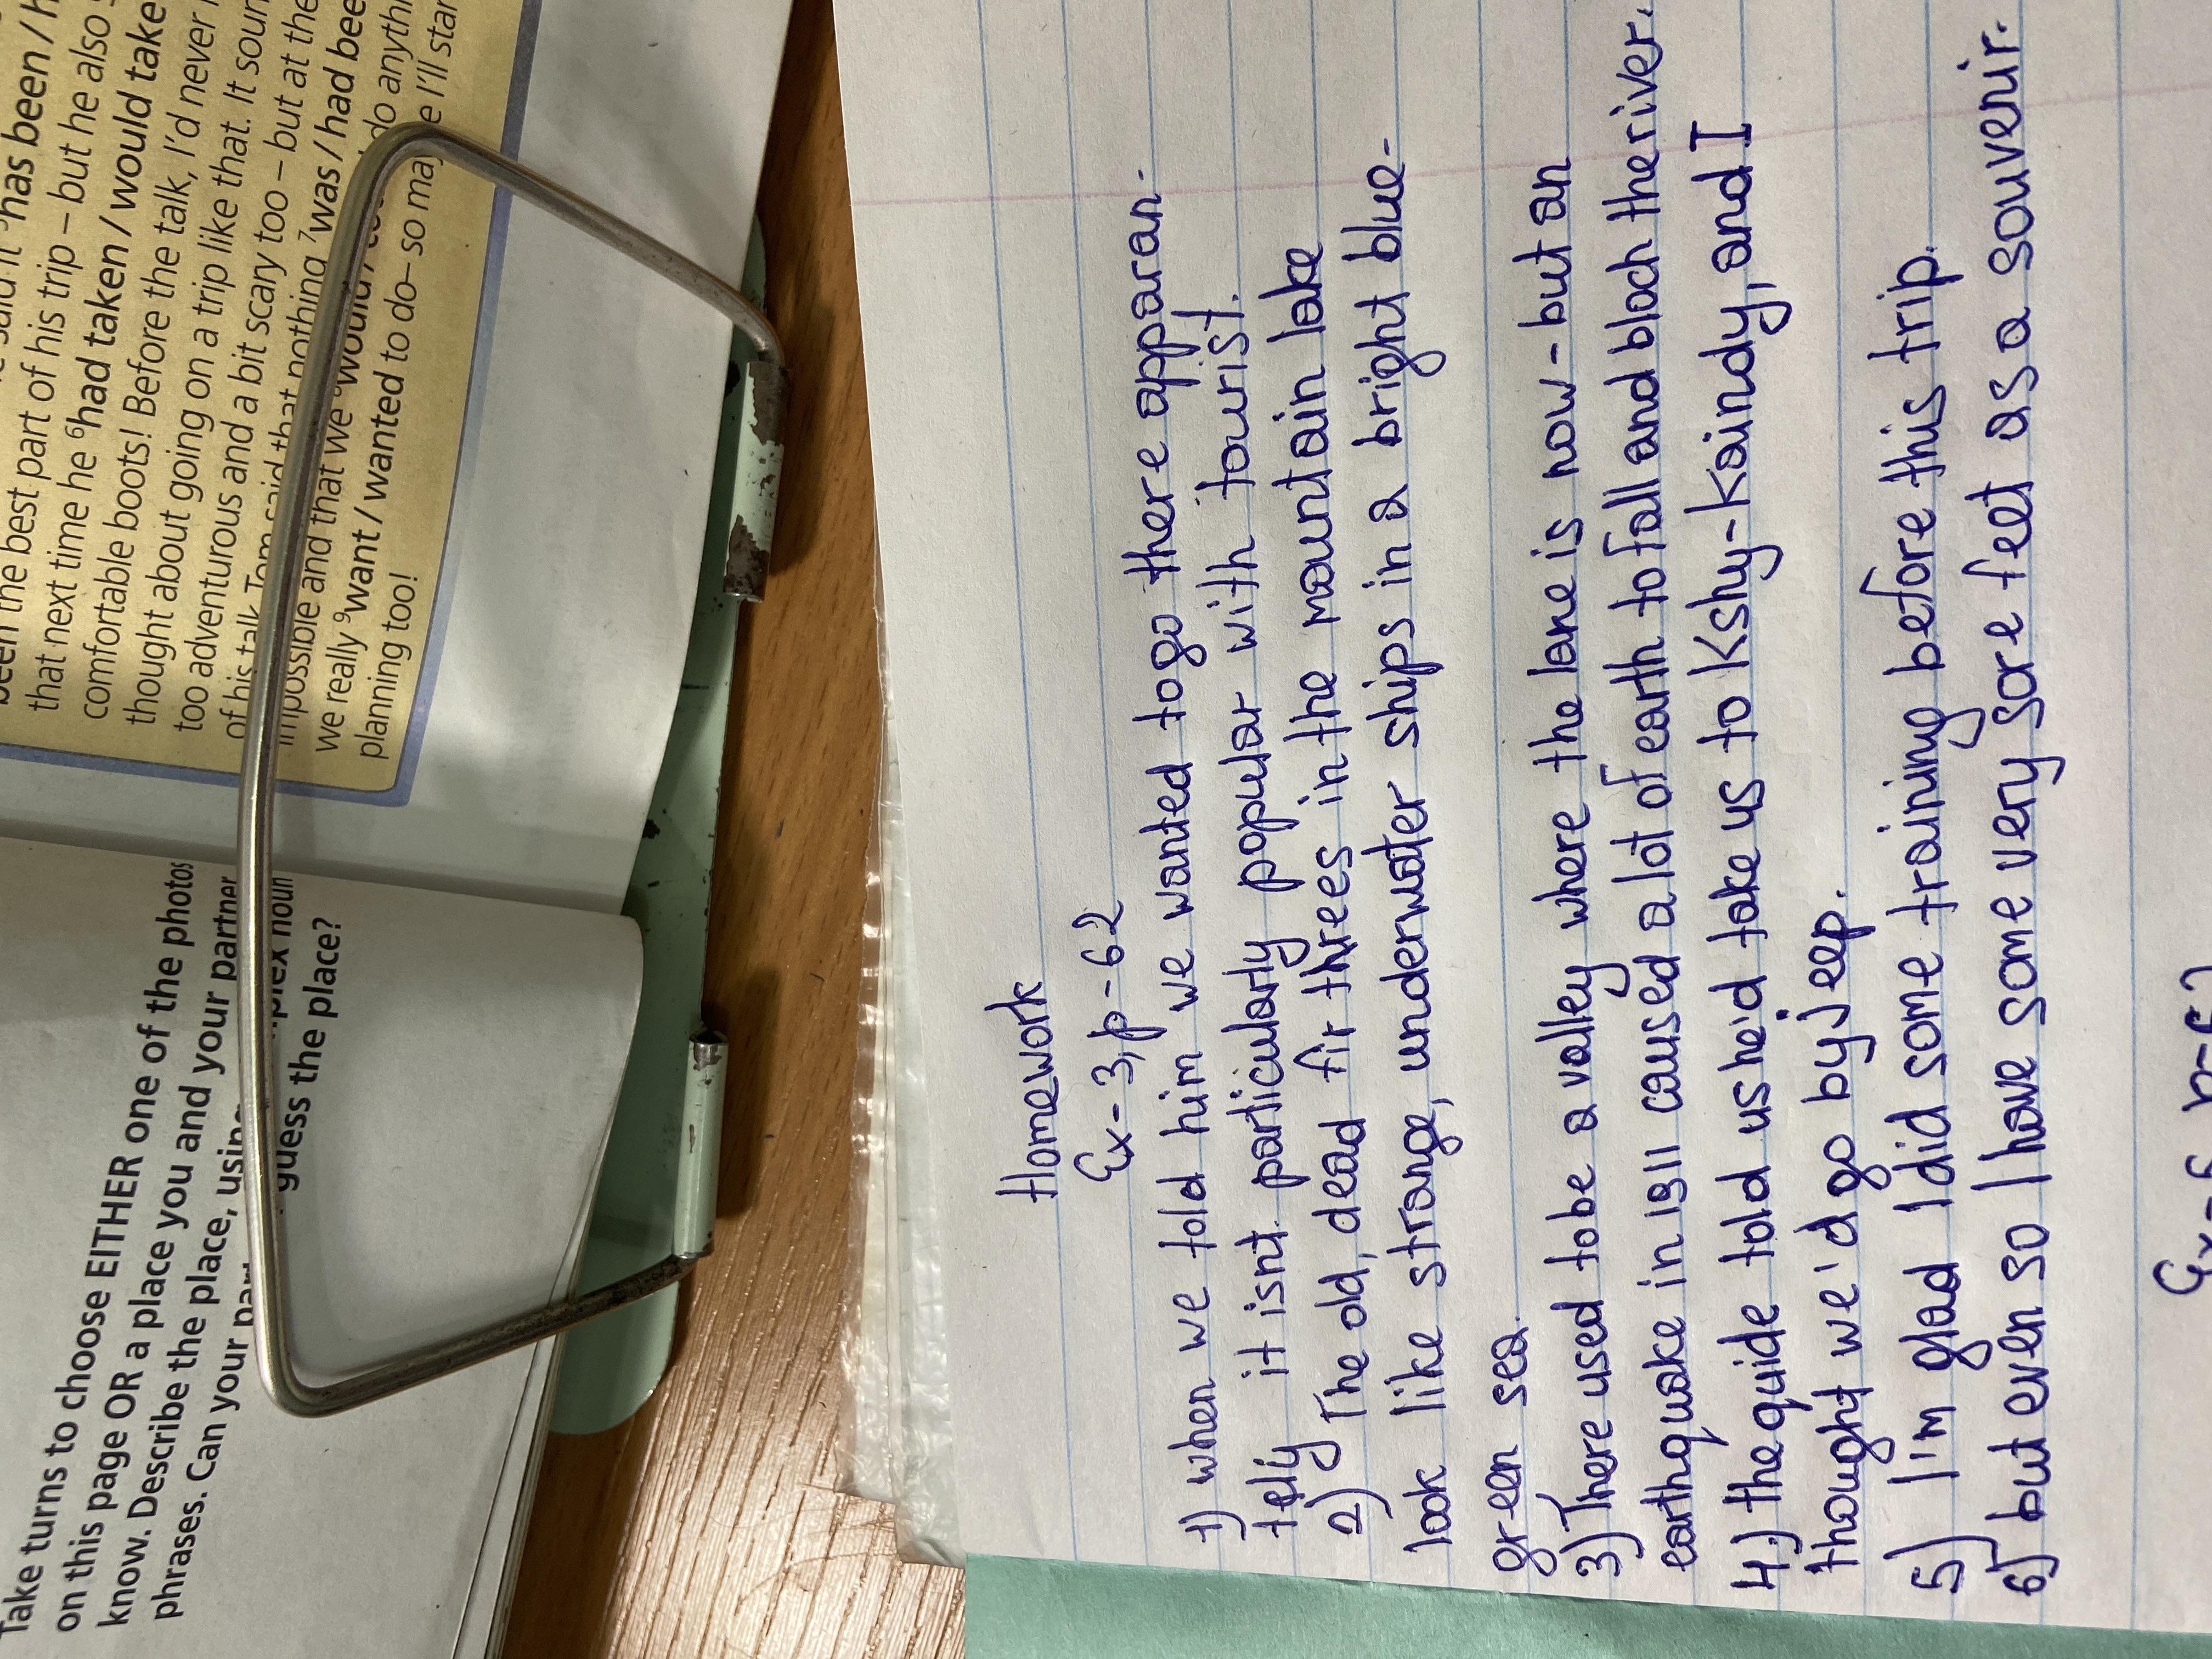 Take turns to choose EITHER one of the photos
on this page OR a place you and your partner
know. Describe the place, using
phrases. Can your
guess the place?
been the best part of his trip – but he also
that next time he ⁶had taken / would take
comfortable boots! Before the talk, I'd never
thought about going on a trip like that. It
too adventurous and a bit scary too – but at the
of his talk Tom said that nothing ⁷was / had
impossible and that we
we really ⁹want / wanted to do – so
planning too!
Homework
Ex-3, p-62
1) when we told him we wanted to go there apparan-
telly it isnt particularly popular with tourist.
2) The old, dead fir threes in the mountain lake
look like strange, underwater ships in a bright blue-
green sea.
3) There used to be a valley where the lane is now - but an
earthquake in 1911 caused a lot of earth to fall and bloch the river.
4.) the guide told us he'd take us to Kshy-Kaindy, and I
thought we'd go by jeep.
5) I'm glad I did some training before this trip.
6) but even so I have some very sore feet as a souvenir.